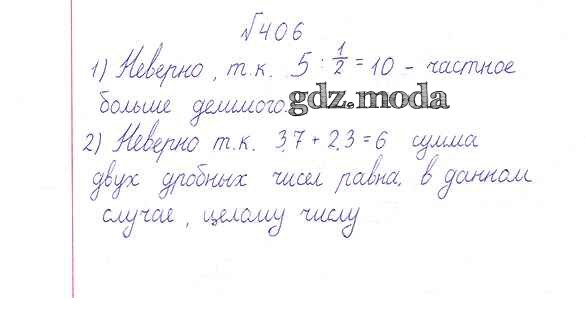 №406
1) Неверно, т.к. 5 : 1/2 = 10 – частное
больше делимого. gdz.moda
2) Неверно т.к. 3,7 + 2,3 = 6 сумма
двух дробных чисел равна, в данном
случае, целому числу